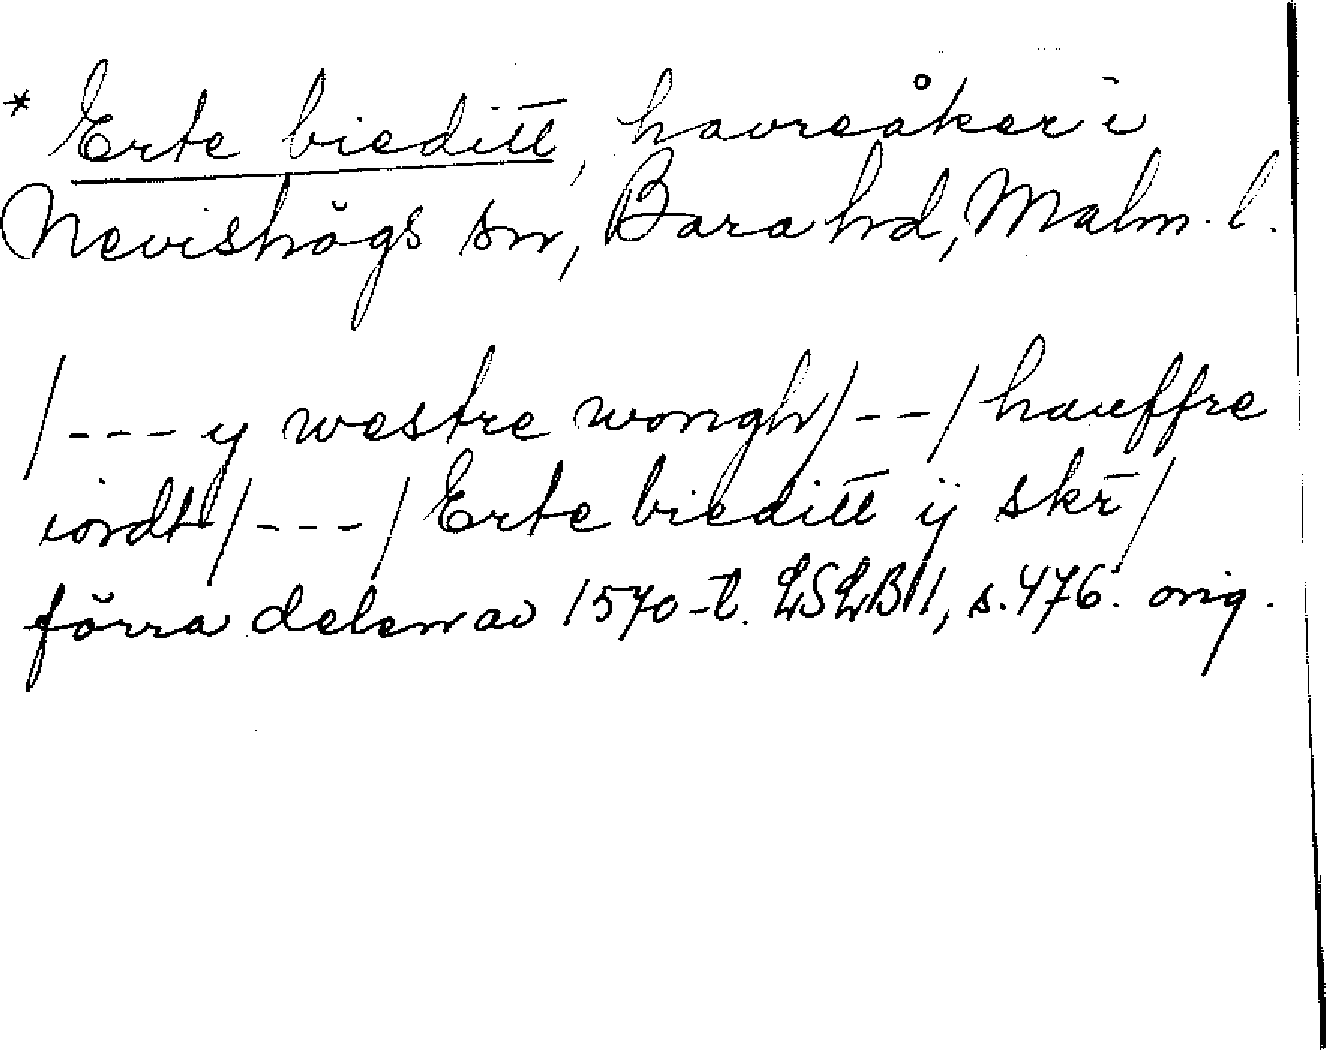 * Erte bieditt, havreåker i
Nevishögs sn, Bara hd, Malm. l.
/---y westre wongh/--/hauffre
iordt/---/Erte bieditt ÿ skr/
förra delen av 1570-t. LSLB II, s. 476. orig.